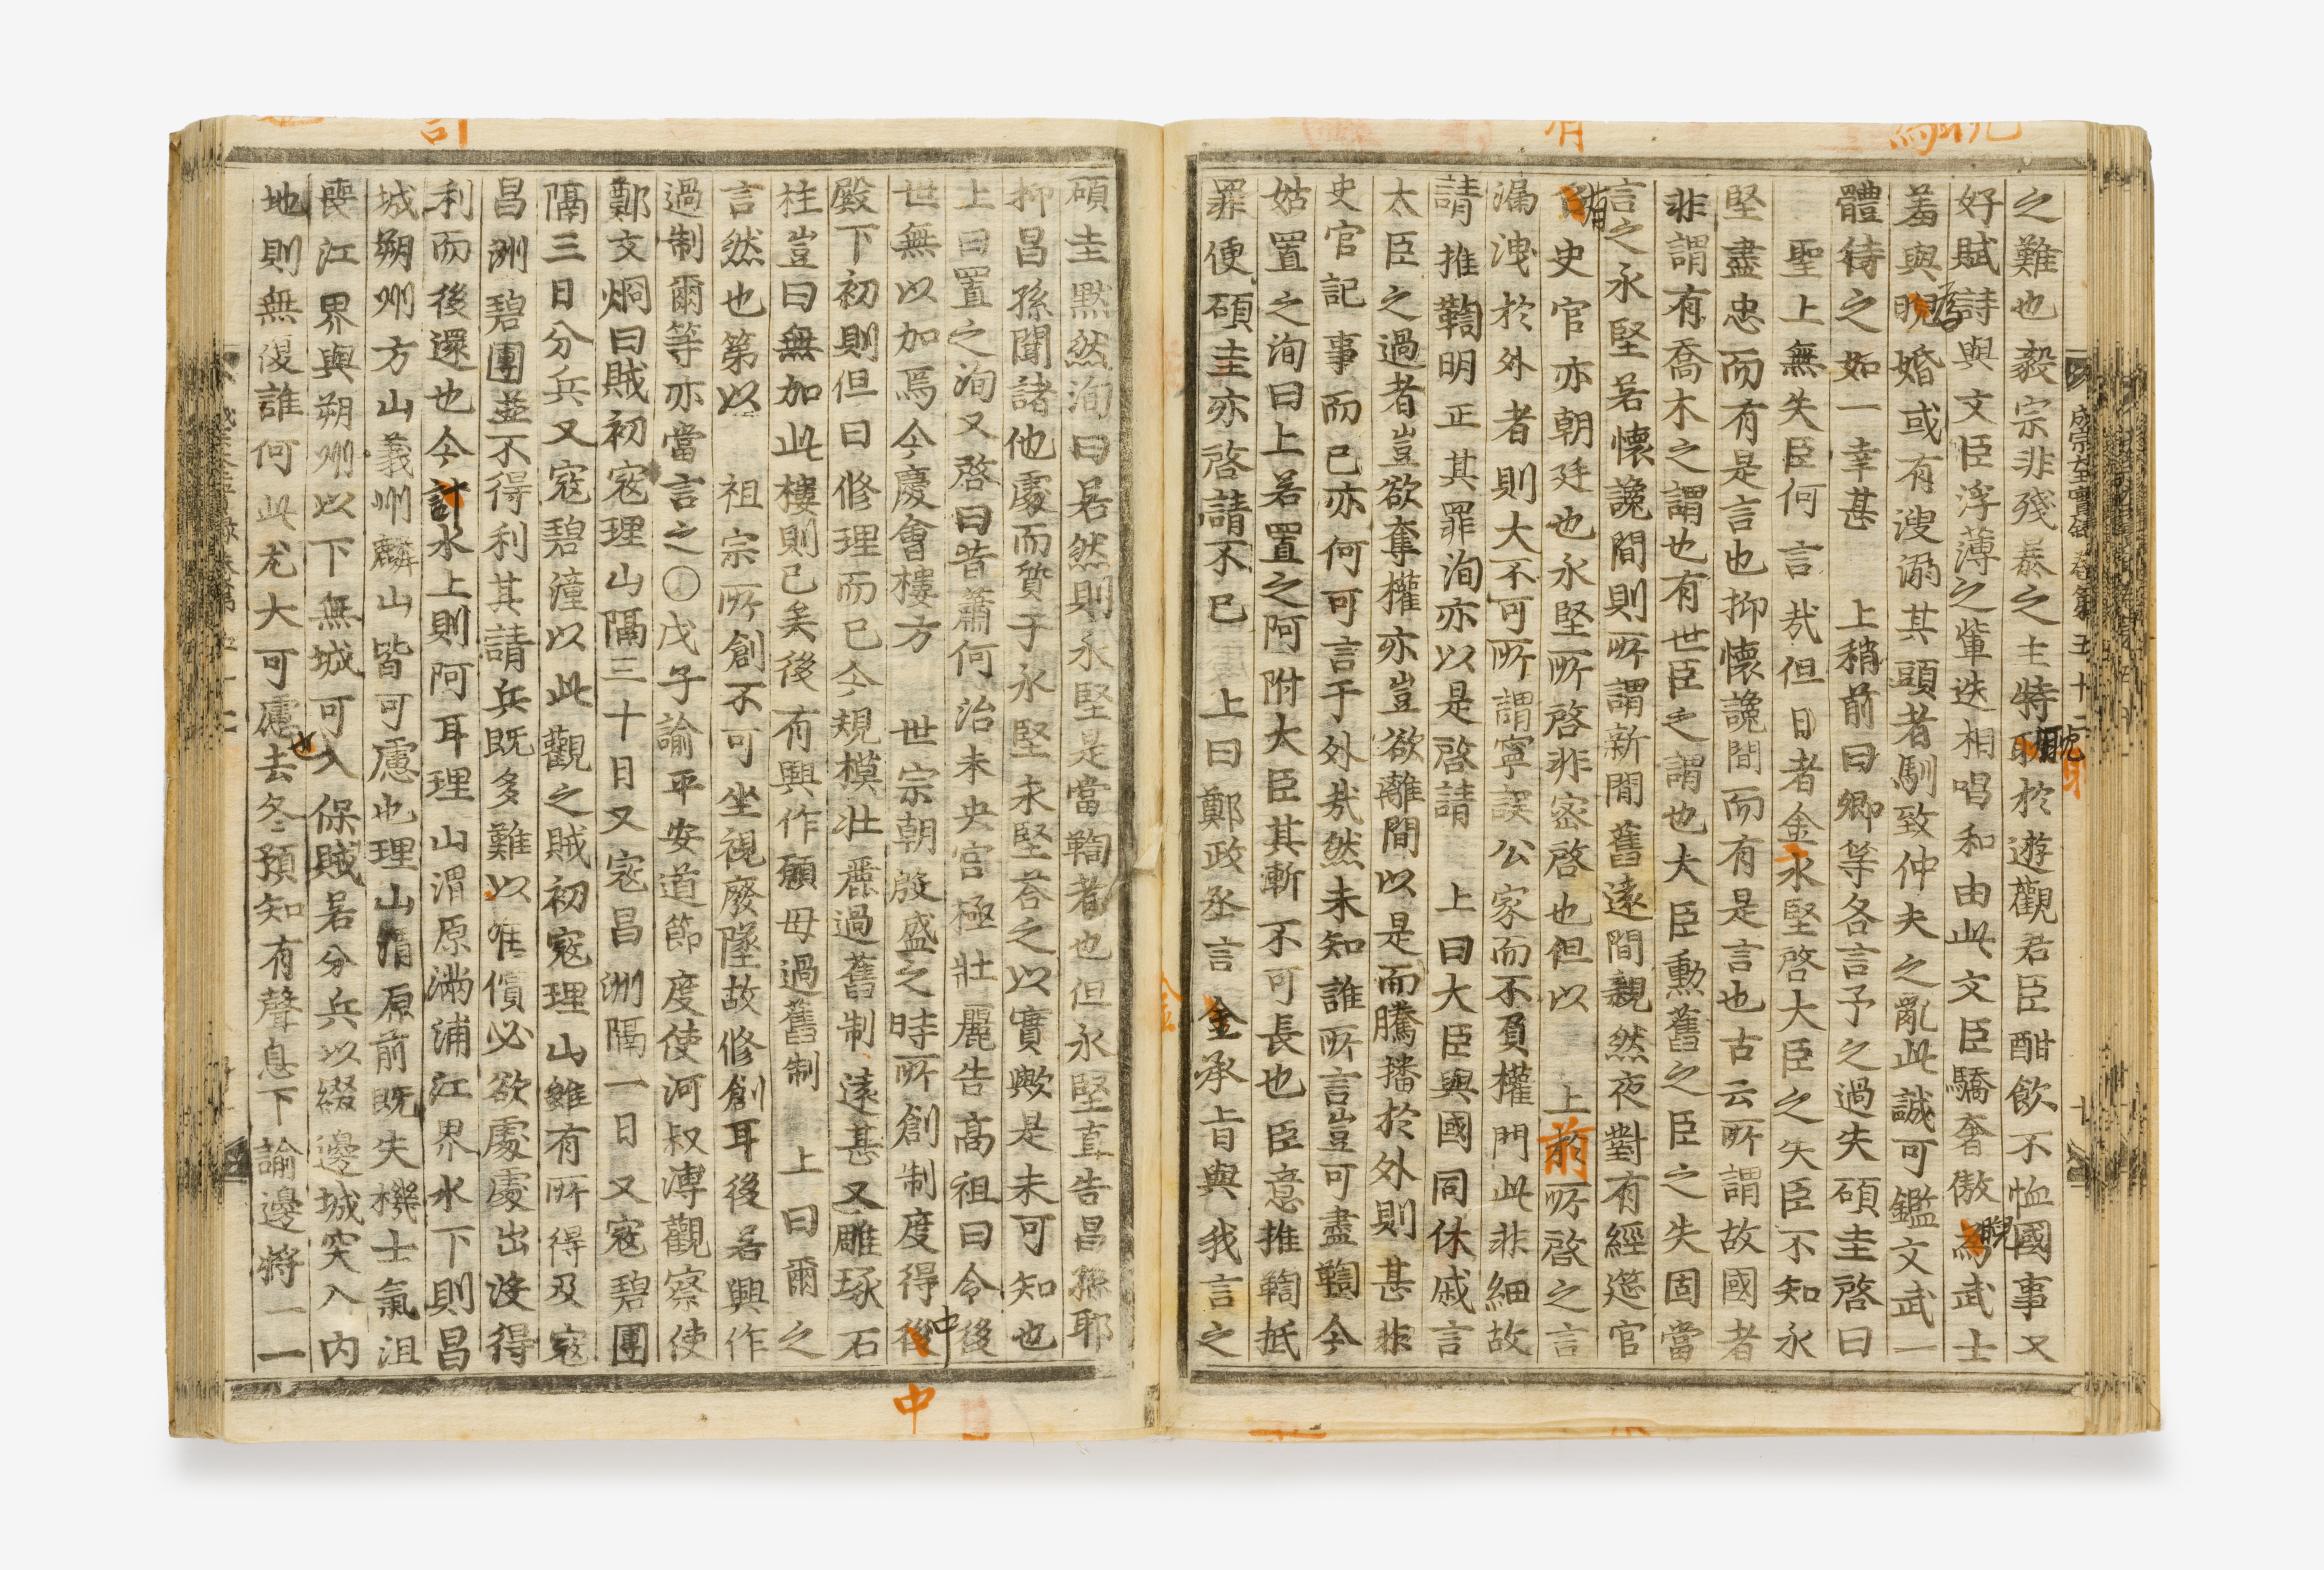 之難也毅宗非殘暴之主特耽於遊觀君臣酣飲不恤國事又
好賦詩與文臣浮薄之輩迭相唱和由此文臣驕奢傲睨武士
羞與爲婚或有溲溺其頭者馴致仲夫之亂此誠可鑑文武一
體待之如一幸甚 上稍前曰卿等各言予之過失碩圭啓曰
聖上無失臣何言哉但日者金永堅啓大臣之失臣不知永
堅盡忠而有是言也抑懷讒間而有是言也古云所謂故國者
非謂有喬木之謂也有世臣之謂也大臣勳舊之臣之失固當
言之永堅若懷讒間則所謂新間舊遠間親然夜對有經筵官
有史官亦朝廷也永堅所啓非密啓也但以 上前所啓之言
漏洩於外者則大不可所謂寧誤公家而不負權門此非細故
請推鞫明正其罪洵亦以是啓請 上曰大臣與國同休戚言
大臣之過者豈欲奪權亦豈欲離間以是而騰播於外則甚非
史官記事而已亦何可言于外哉然未知誰所言豈可盡鞫今
姑置之洵曰上若置之阿附大臣其漸不可長也臣意推鞫抵
罪便碩圭亦啓請不已 上曰鄭政丞言金承旨與我言之
成宗大王實錄卷第五十二
碩圭黙然洵曰若然則永堅是當鞫者也但永堅直告昌孫耶
抑昌孫聞諸他處而質于永堅永堅荅之以實歟是未可知也
上曰置之洵又啓曰昔蕭何治未央宮極壯麗告高祖曰令後
世無以加焉今慶會樓方 世宗朝殷盛之時所創制度得中
殿下初則但曰修理而已今規模壯麗過舊制遠甚又雕琢石
柱豈曰無加此樓則已矣後有興作願毋過舊制 上曰爾之
言然也第以 祖宗所創不可坐視廢墜故修創耳後若興作
過制爾等亦當言之○戊子諭平安道節度使河叔溥觀察使
鄭文烱曰賊初寇理山隔三十日又寇昌洲隔一日又寇碧團
隔三日分兵又寇碧潼以此觀之賊初寇理山雖有所得及寇
昌洲碧團並不得利其請兵既多難以唯償必欲處處出沒得
利而後還也今計水上則阿耳理山渭原滿浦江界水下則昌
城朔州方山義州麟山皆可慮也理山渭原前既失機士氣沮
喪江界與朔州以下無城可入保賊若分兵以綴邊城突入內
地則無復誰何此尤大可慮也去冬預知有聲息下諭邊將一一
計
有
金
中